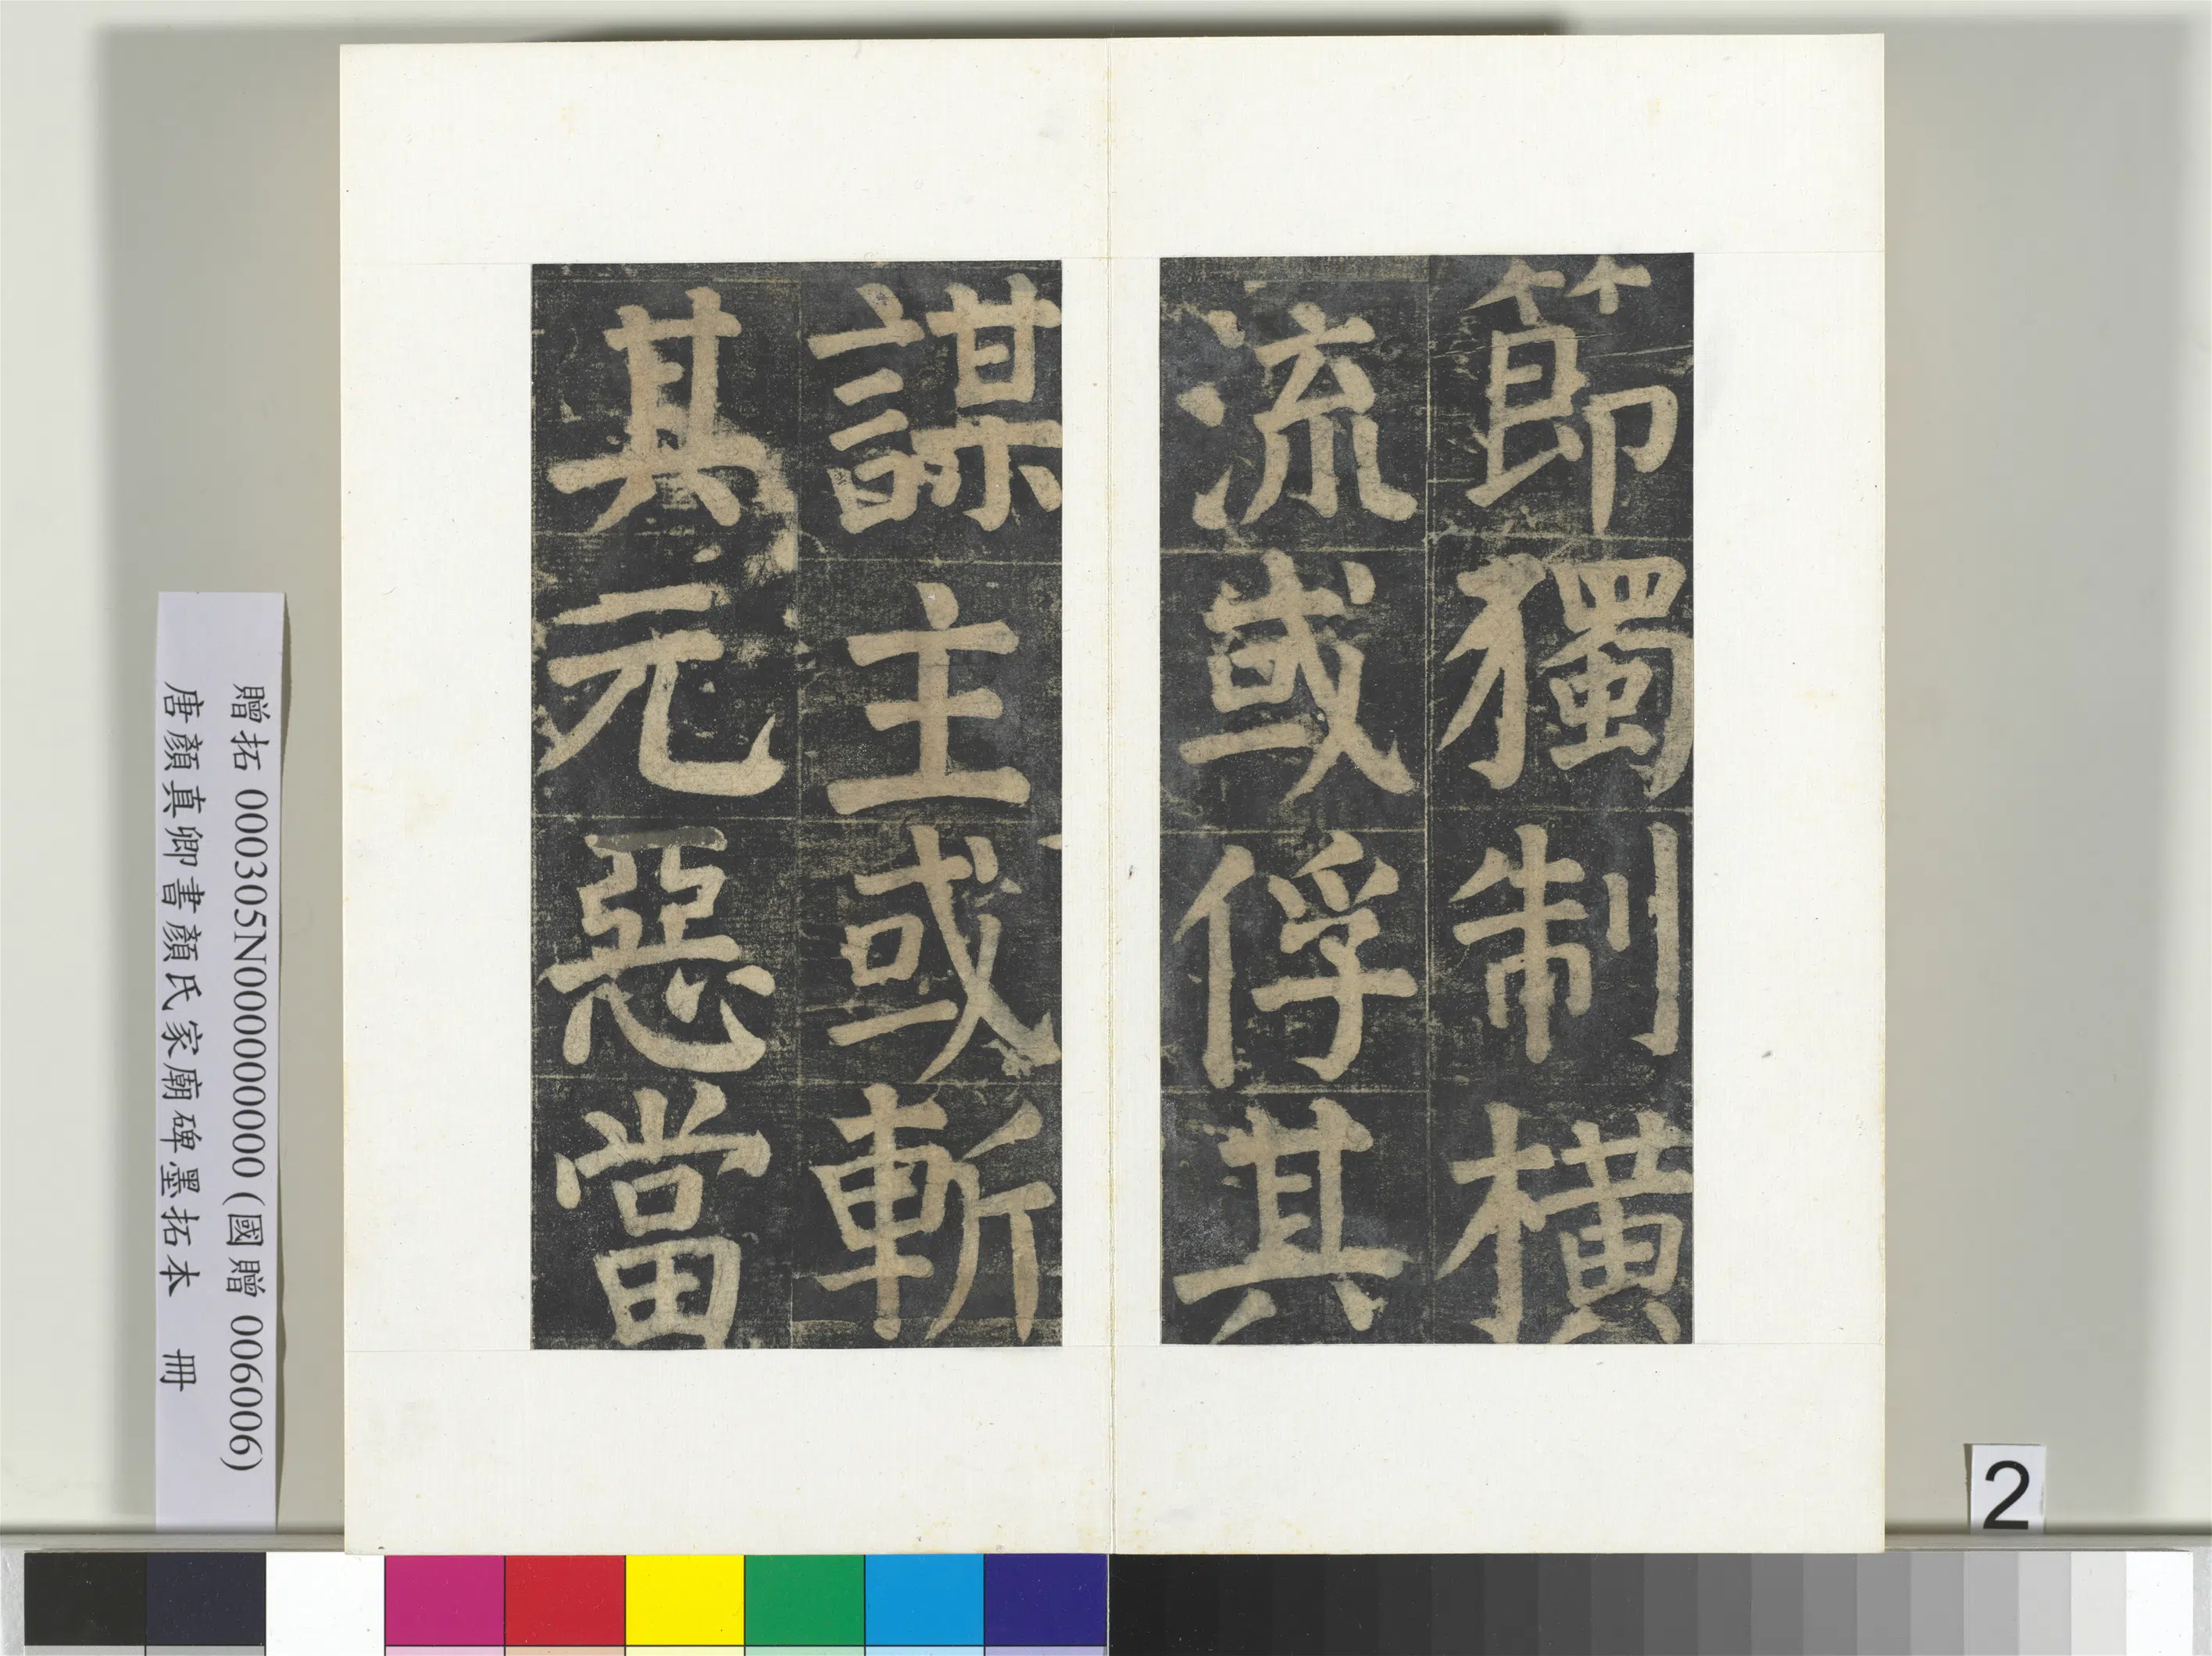 節獨制橫
流或俘其
謀主或斬
其元惡當
贈拓 000305N000000000 (國贈 006006)
唐顏真卿書顏氏家廟碑墨拓本 冊
2